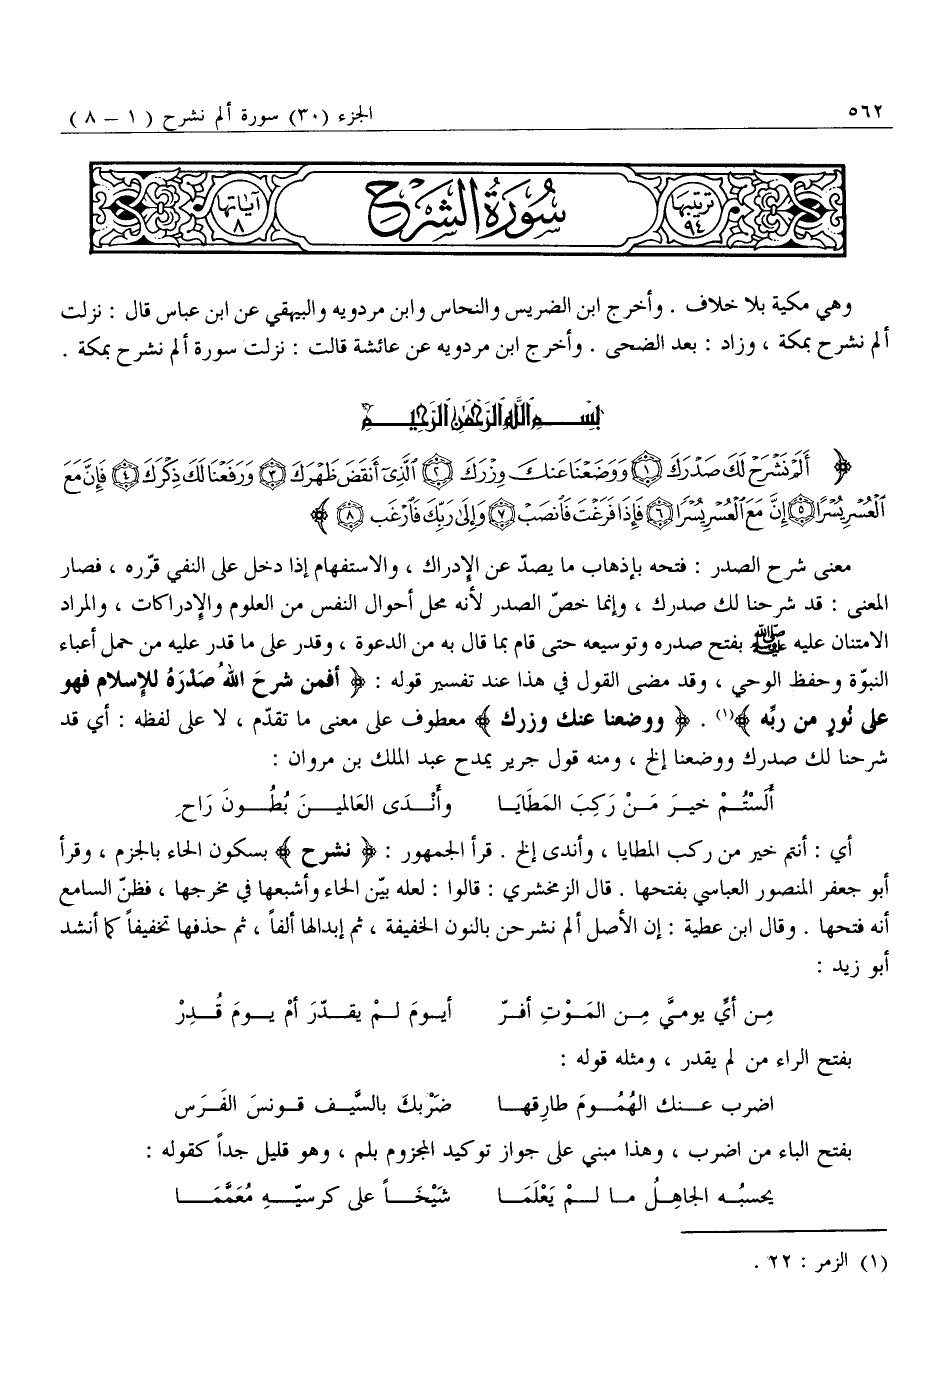 ٥٦٢
الجزء (٣٠) سورة ألم نشرح ( ١ – ٨ )
ترتيبها ٩٤
سُورَةُ الشَّرْحِ
آياتها ٨
وهي مكية بلا خلاف . وأخرج ابن الضريس والنحاس وابن مردويه والبيهقي عن ابن عباس قال : نزلت
ألم نشرح بمكة ، وزاد : بعد الضحى . وأخرج ابن مردويه عن عائشة قالت : نزلت سورة ألم نشرح بمكة .
بِسْمِ اللَّهِ الرَّحْمَٰنِ الرَّحِيمِ
﴿ أَلَمْ نَشْرَحْ لَكَ صَدْرَكَ ﴿١﴾ وَوَضَعْنَا عَنكَ وِزْرَكَ ﴿٢﴾ ٱلَّذِىٓ أَنقَضَ ظَهْرَكَ ﴿٣﴾ وَرَفَعْنَا لَكَ ذِكْرَكَ ﴿٤﴾ فَإِنَّ مَعَ
ٱلْعُسْرِ يُسْرًا ﴿٥﴾ إِنَّ مَعَ ٱلْعُسْرِ يُسْرًا ﴿٦﴾ فَإِذَا فَرَغْتَ فَٱنصَبْ ﴿٧﴾ وَإِلَىٰ رَبِّكَ فَٱرْغَب ﴿٨﴾ ﴾
معنى شرح الصدر : فتحه بإذهاب ما يصدّ عن الإدراك ، والاستفهام إذا دخل على النفي قرّره ، فصار
المعنى : قد شرحنا لك صدرك ، وإنما خصّ الصدر لأنه محل أحوال النفس من العلوم والإدراكات ، والمراد
الامتنان عليه ﷺ بفتح صدره وتوسيعه حتى قام بما قال به من الدعوة ، وقدر على ما قدر عليه من حمل أعباء
النبوّة وحفظ الوحي ، وقد مضى القول في هذا عند تفسير قوله : ﴿ أفمن شرحَ اللهُ صَدْرَهُ للإسلام فهو
على نُورٍ من ربِّه ﴾(١) . ﴿ ووضعنا عنك وزرك ﴾ معطوف على معنى ما تقدّم ، لا على لفظه : أي قد
شرحنا لك صدرك ووضعنا إلخ ، ومنه قول جرير يمدح عبد الملك بن مروان :
أَلَسْتُمْ خيرَ مَنْ رَكِبَ المَطَايَا وأَنْدَى العَالمينَ بُطُونَ رَاحِ
أي : أنتم خير من ركب المطايا ، وأندى إلخ . قرأ الجمهور : ﴿ نشرح ﴾ بسكون الحاء بالجزم ، وقرأ
أبو جعفر المنصور العباسي بفتحها . قال الزمخشري : قالوا : لعله بيّن الحاء وأشبعها في مخرجها ، فظنّ السامع
أنه فتحها . وقال ابن عطية : إن الأصل ألم نشرحن بالنون الخفيفة ، ثم إبدالها ألفاً ، ثم حذفها تخفيفاً كما أنشد
أبو زيد :
مِن أيِّ يوميَّ مِن المَوْتِ أفرّ أيومَ لمْ يقدّرَ أمْ يومَ قُدِرْ
بفتح الراء من لم يقدر ، ومثله قوله :
اضرب عنك الهُمُومَ طارِقها ضَرْبكَ بالسَّيف قونسَ الفَرَس
بفتح الباء من اضرب ، وهذا مبني على جواز توكيد المجزوم بلم ، وهو قليل جداً كقوله :
يحسبُه الجاهِلُ ما لمْ يَعْلَمَا شَيْخَاً على كرسيّهِ مُعَمَّمَا
(١) الزمر : ٢٢ .